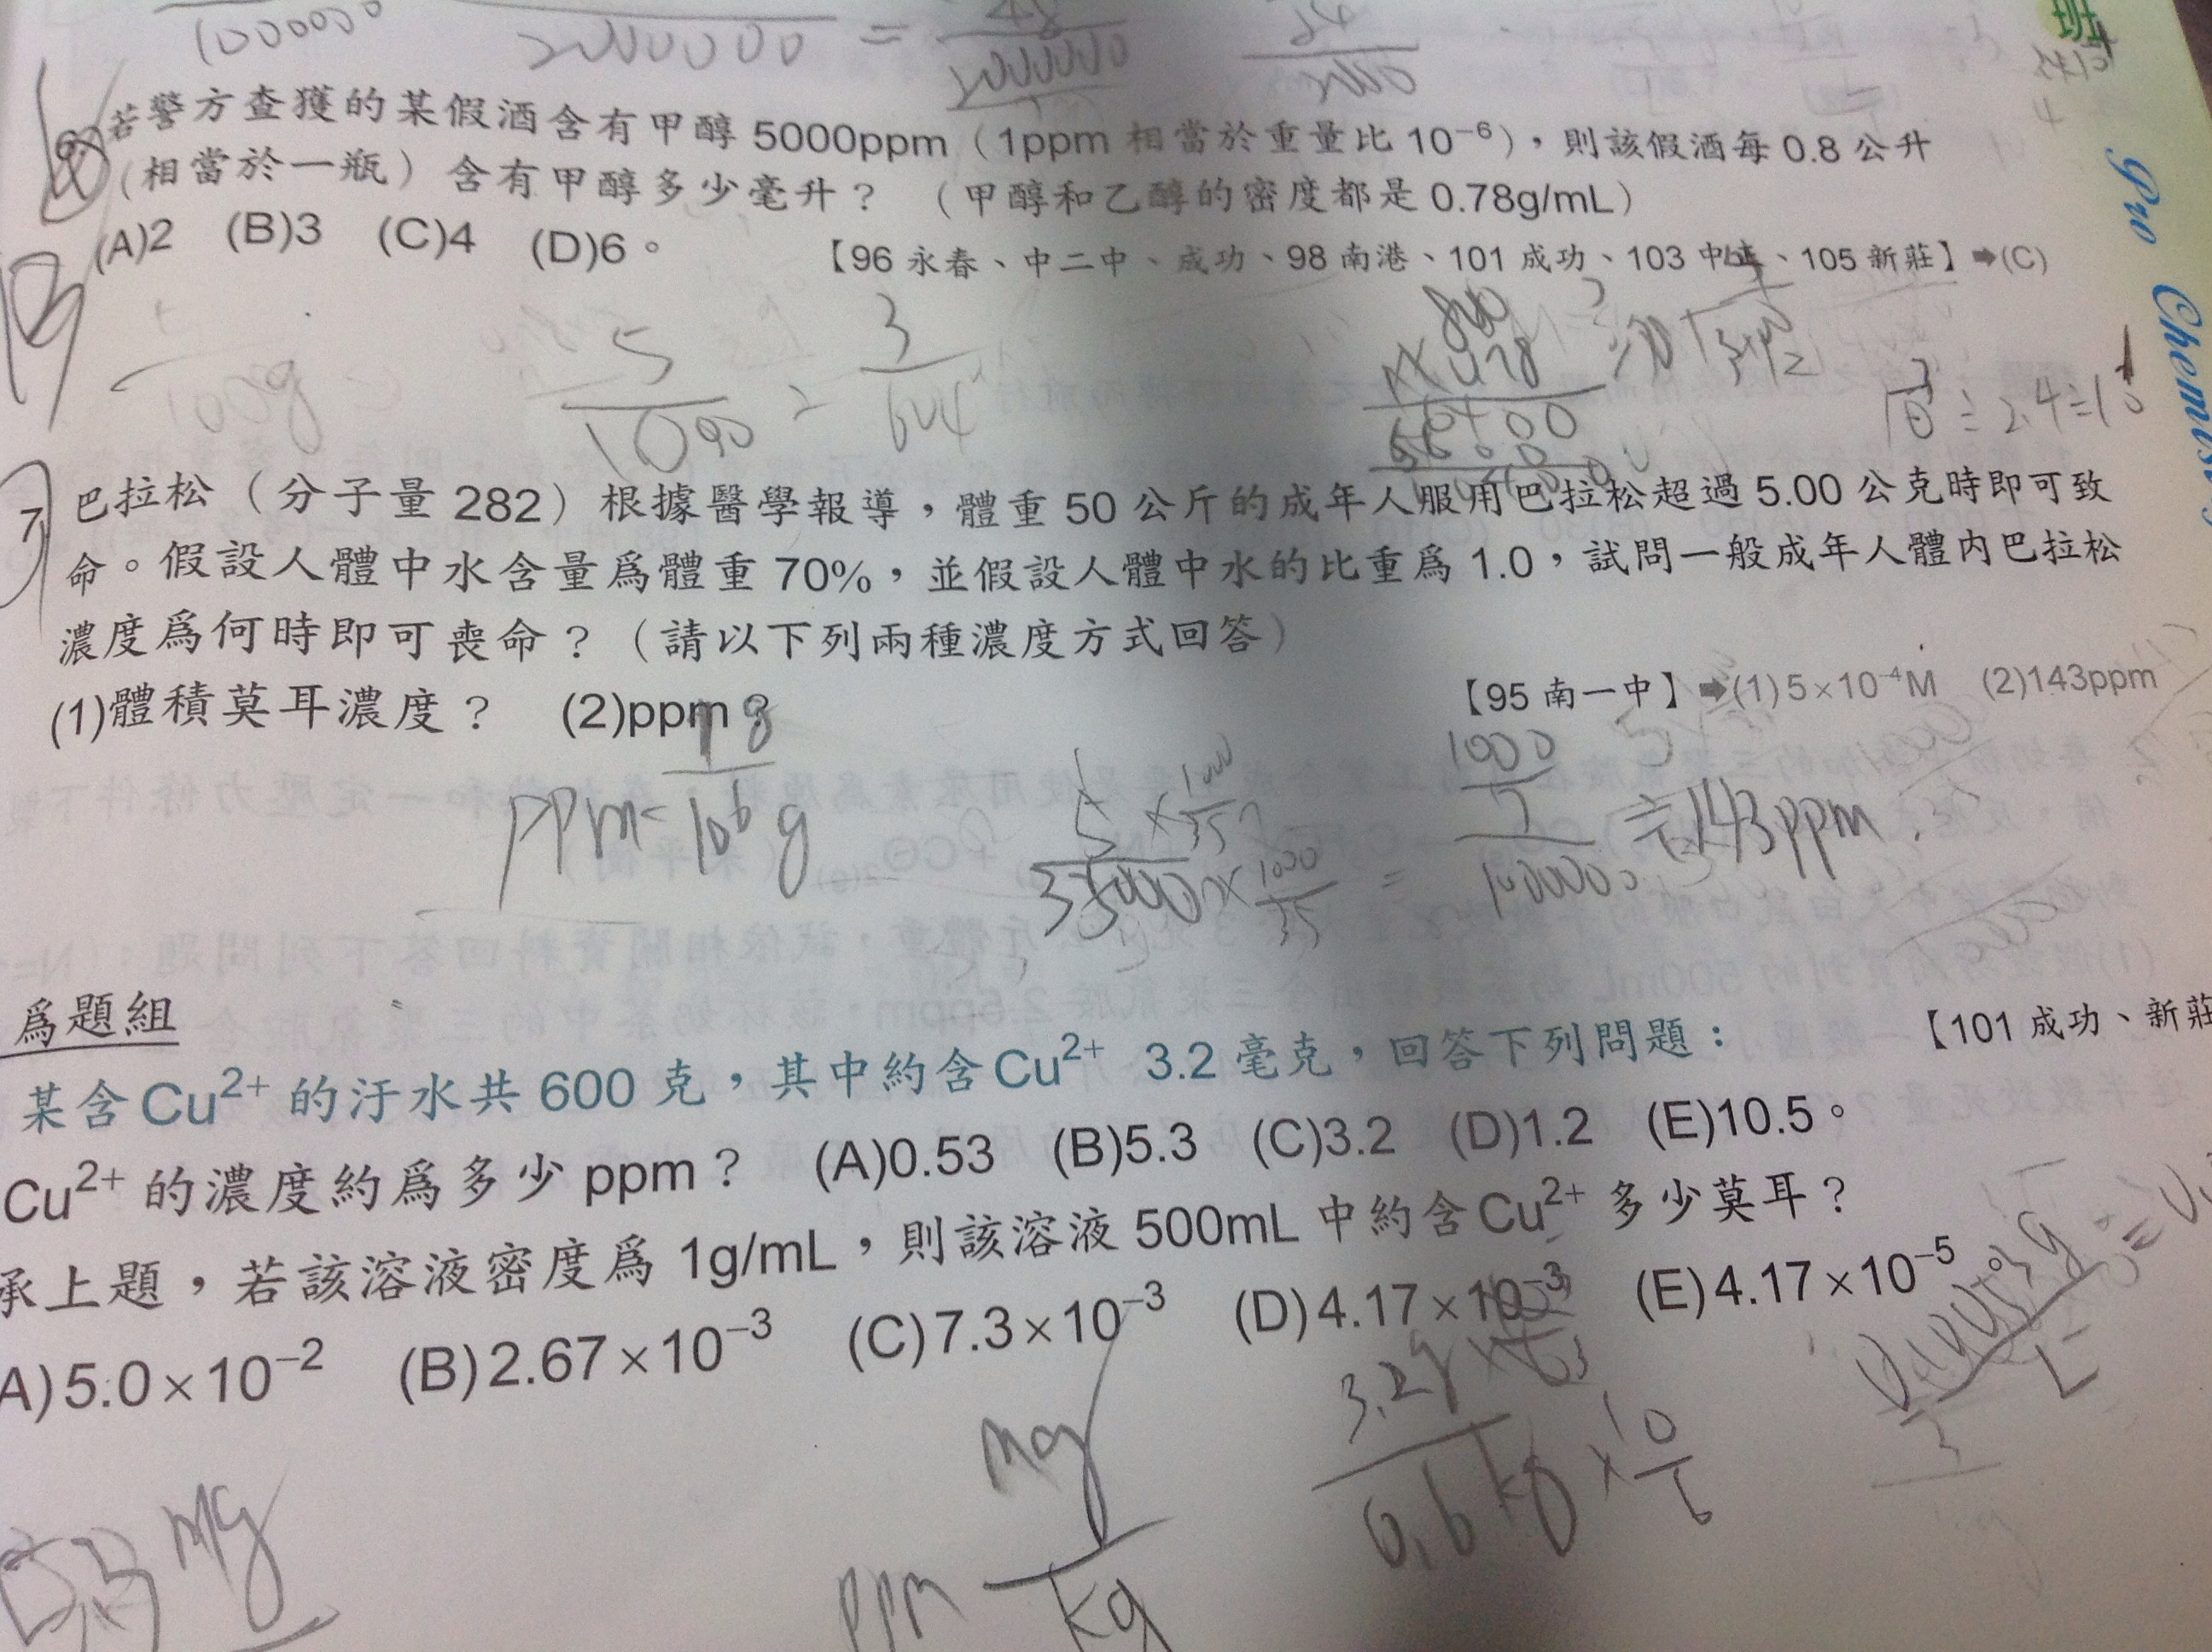 100000 2000000 = 48/2000000 24/2000
班
若警方查獲的某假酒含有甲醇 5000ppm（1ppm 相當於重量比 10⁻⁶），則該假酒每 0.8 公升
（相當於一瓶）含有甲醇多少毫升？（甲醇和乙醇的密度都是 0.78g/mL）
(A)2 (B)3 (C)4 (D)6。 【96 永春、中二中、成功、98 南港、101 成功、103 中正、105 新莊】➡(C)
Pro Chemist
7
巴拉松（分子量 282）根據醫學報導，體重 50 公斤的成年人服用巴拉松超過 5.00 公克時即可致
命。假設人體中水含量爲體重 70%，並假設人體中水的比重爲 1.0，試問一般成年人體內巴拉松
濃度爲何時即可喪命？（請以下列兩種濃度方式回答）
(1)體積莫耳濃度？ (2)ppm？ 【95 南一中】➡(1)5×10⁻⁴M (2)143ppm
ppm= 1g/10⁶g 5×1000/35 / 35000×1000/35 = 1000/7 / 1000000 ≒143ppm
爲題組 【101 成功、新莊
某含Cu²⁺的汙水共 600 克，其中約含Cu²⁺ 3.2 毫克，回答下列問題：
Cu²⁺的濃度約爲多少 ppm？ (A)0.53 (B)5.3 (C)3.2 (D)1.2 (E)10.5。
承上題，若該溶液密度爲 1g/mL，則該溶液 500mL 中約含Cu²⁺多少莫耳？
A)5.0×10⁻² (B)2.67×10⁻³ (C)7.3×10⁻³ (D)4.17×10⁻³ (E)4.17×10⁻⁵
5.3 mg ppm mg/kg 3.2g/0.6kg × 10/6